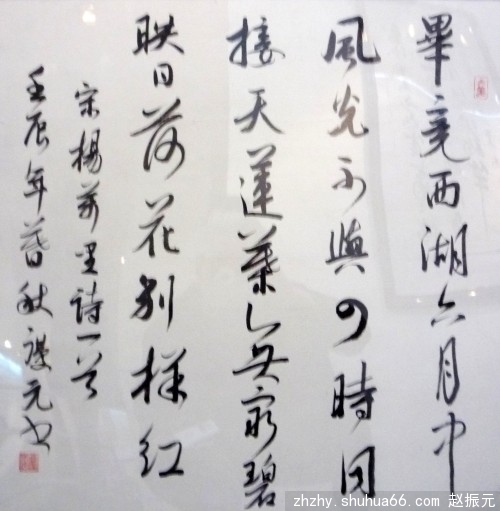 畢竟西湖六月中
風光不與四時同
接天蓮葉無窮碧
映日荷花别樣红
宋楊萬里詩一首
壬辰年暮秋元书
zhzhy.shuhua66.com 赵振元